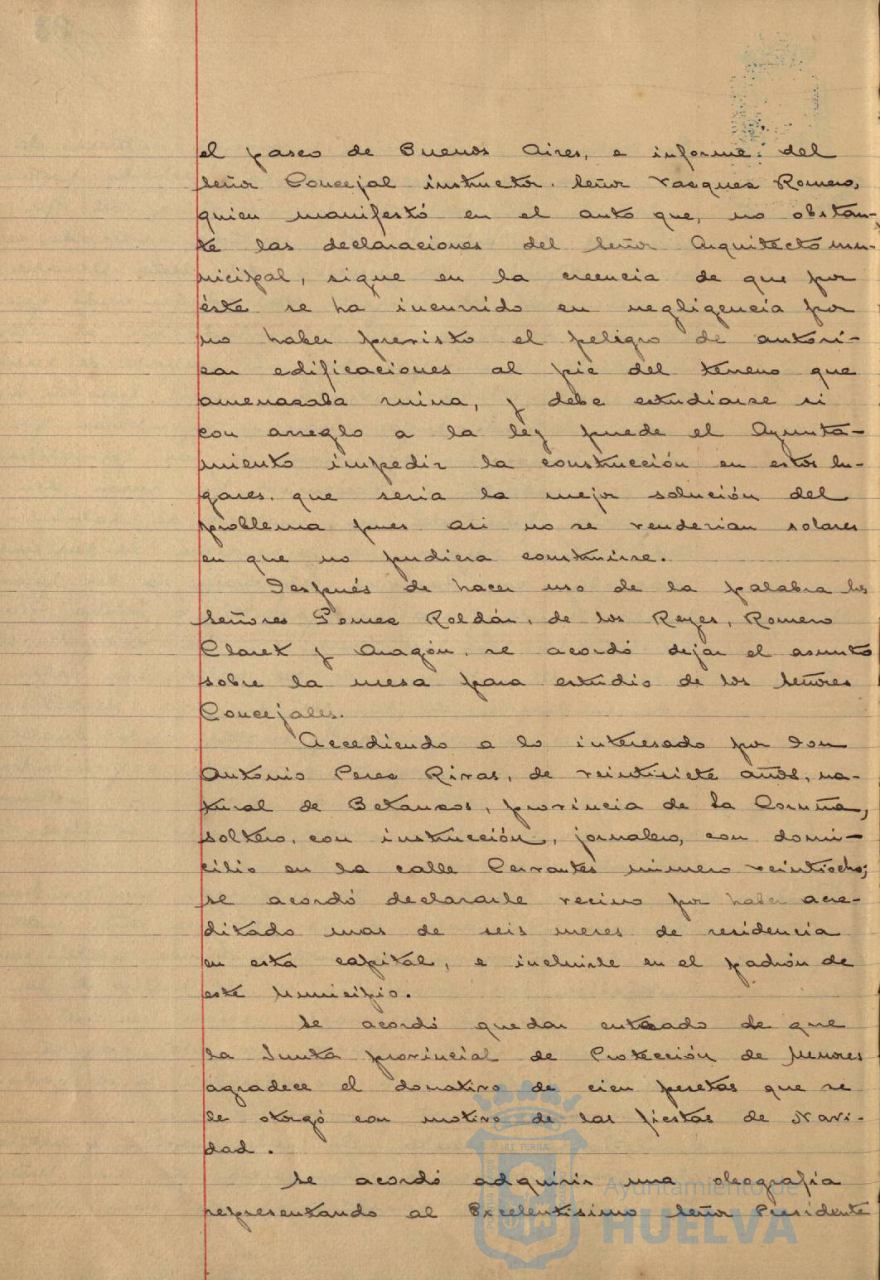 el paseo de Buenos Aires, e informe del
Señor Concejal instructor. Señor Vasquez Romero,
quien manifestó en el auto que, no obstan-
te las declaraciones del Señor Arquitecto mu-
nicipal, sigue en la creencia de que por
éste se ha incurrido en negligencia por
no haber previsto el peligro de autori-
zar edificaciones al pie del terreno que
amenazaba ruina, y debe estudiarse si
con arreglo a la ley puede el Ayunta-
miento impedir la construcción en estos lu-
gares. que seria la mejor solución del
problema pues asi no se venderian solares
en que no pudiera construirse.
Después de hacer uso de la palabra los
Señores Gomez Roldán, de los Reyes, Romero
Claret y Aragón. se acordó dejar el asunto
sobre la mesa para estudio de los Señores
Concejales.
Accediendo a lo interesado por Don
Antonio Perez Rivas, de veintisiete años, na-
tural de Betanzos, provincia de La Coruña,
soltero, con instrucción, jornalero, con domi-
cilio en la calle Cervantes número veintiocho;
se acordó declararle vecino por haber acre-
ditado mas de seis meses de residencia
en esta capital, e incluirle en el padrón de
este Municipio.
Se acordó quedar enterado de que
la Junta provincial de Protección de Menores
agradece el donativo de cien pesetas que se
le otorgó con motivo de las fiestas de Navi-
dad.
Se acordó adquirir una oleografia
representando al Excelentisimo Señor Presidente
Ayuntamiento de
HUELVA